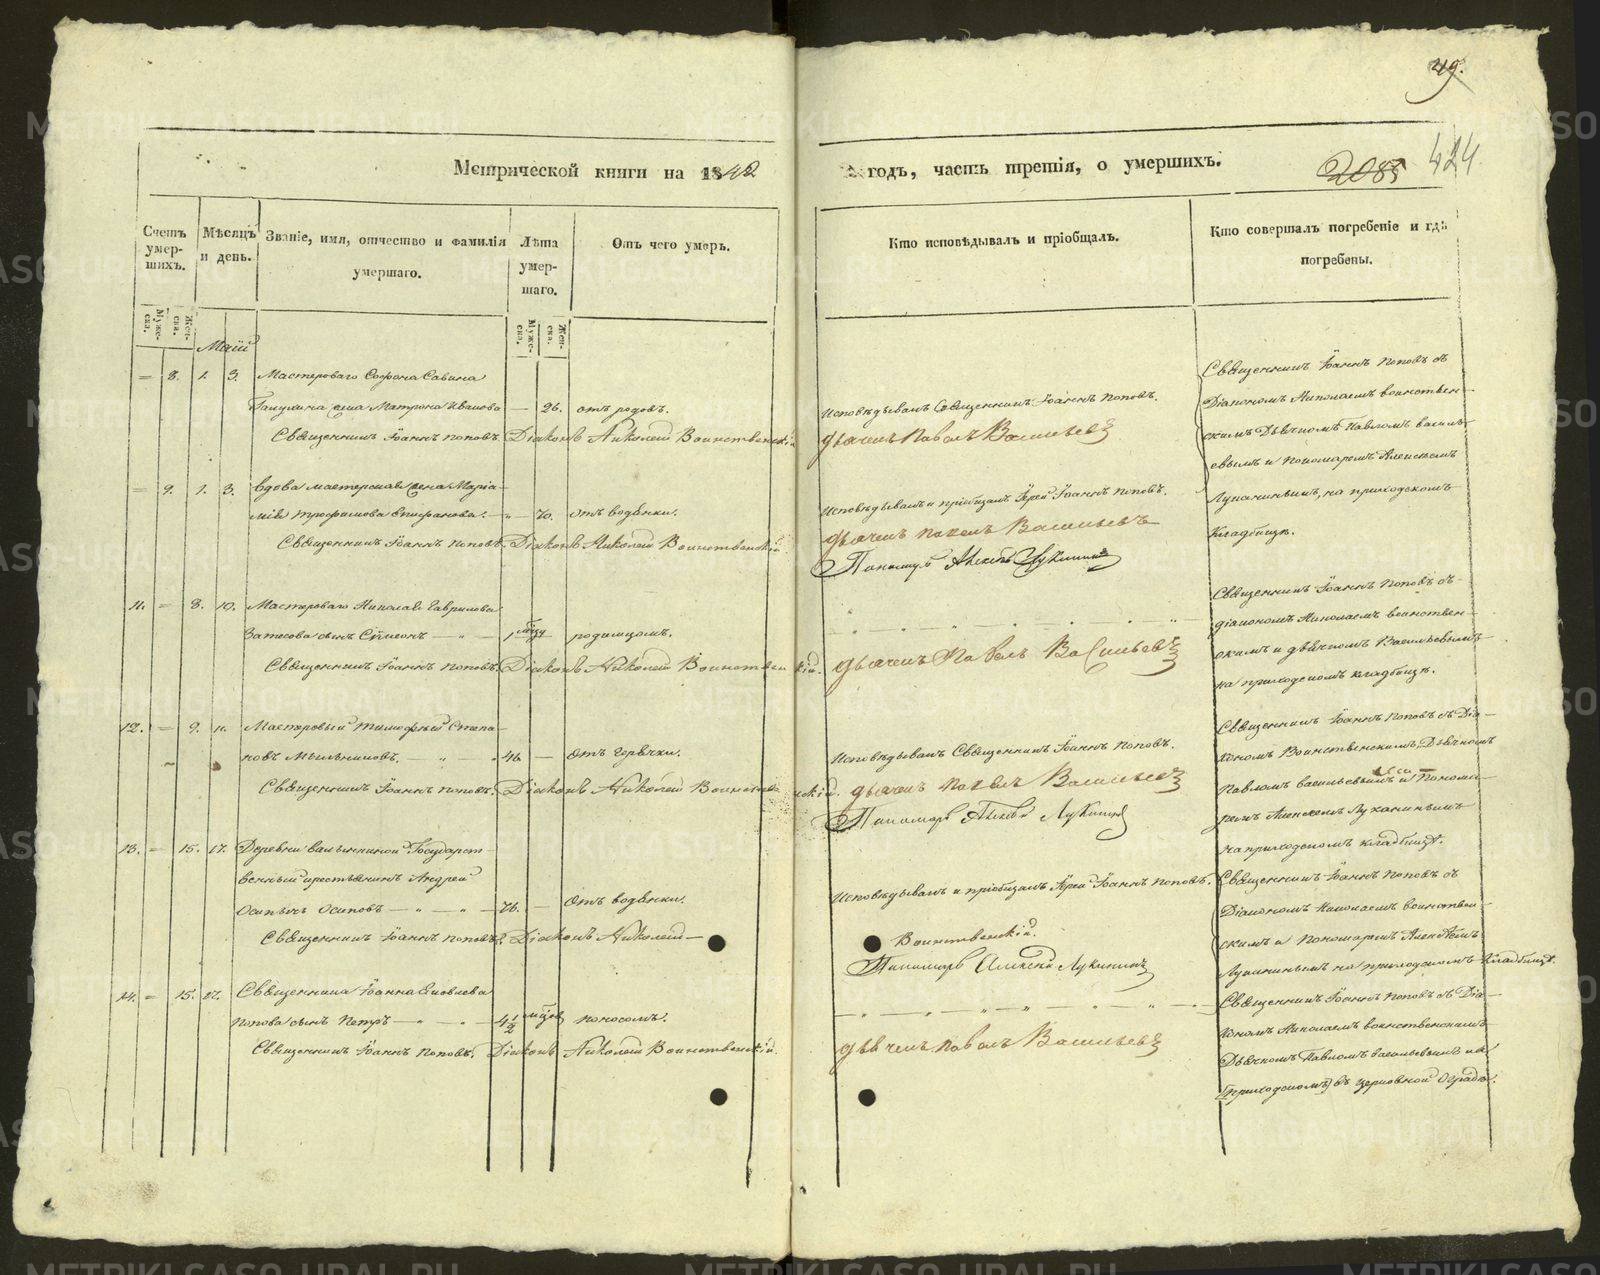 49.
424
2085
Метрической книги на 1842
годъ, часть третія, о умершихъ.
Счетъ умер-шихъ.
Мѣсяцъ и день.
Званіе, имя, отчество и фамилія умершаго.
Лѣта умер-шаго.
Отъ чего умеръ.
Кто исповѣдывалъ и пріобщалъ.
Кто совершалъ погребеніе и гдѣ погребены.
Муже-ска.
Жен-ска.
Муже-ска.
Жен-ска.
Маій
= 8. 1. 3. Мастероваго Софона Савина
жена Матрона Иванова — 26. отъ родовъ.
Священникъ Іоаннъ Поповъ. Діаконъ Николай Воинственскій
Исповѣдывалъ Священникъ Іоаннъ Поповъ.
дьячекъ Павелъ Васильевъ
Священникъ Іоаннъ Поповъ съ
Діакономъ Николаемъ воинствен-
скимъ Дьячкомъ Павломъ василь-
евымъ и пономаремъ Алексѣемъ
Лукинымъ, на приходскомъ
кладбищѣ.
= 9. 1. 3. вдова мастерская жена Марія
Трофимова Епифанова. — " — 70. отъ водянки.
Священникъ Іоаннъ Поповъ. Діаконъ Николай Воинственскій.
Исповѣдывалъ и пріобщалъ Іерей Іоаннъ Поповъ.
дьячекъ Павелъ Васильевъ
11. = 8. 10. Мастероваго Николая Гаврилова
Затесова сынъ Симеонъ — " — 1 родимцомъ.
Священникъ Іоаннъ Поповъ. Діаконъ Николай Воинственскій.
дьячекъ Павелъ Васильевъ
Священникъ Іоаннъ Поповъ съ
діакономъ Николаемъ воинствен-
скимъ и дьячкомъ Васильевымъ
на приходскомъ кладбищѣ.
12. = 9. 11. Мастеровый Тимофѣй Степа-
новъ Мыльниковъ. — " — 46. — отъ горячки.
Священникъ Іоаннъ Поповъ. Діаконъ Николай Воинственскій.
Исповѣдывалъ Священникъ Іоаннъ Поповъ.
дьячекъ Павелъ Васильевъ
Священникъ Іоаннъ Поповъ съ Діа-
кономъ Воинственскимъ, Дьячкомъ
Павломъ васильевымъ и Понома-
ремъ Алексѣемъ Лукинымъ
на приходскомъ кладбищѣ.
13. = 15. 17. Деревни Государст-
венный крестьянинъ Андрей
Осиповъ — " — " — 76. — отъ водянки.
Священникъ Іоаннъ Поповъ. Діаконъ Николай —
Исповѣдывалъ и пріобщалъ Іерей Іоаннъ Поповъ.
Воинственскій.
Священникъ Іоаннъ Поповъ съ
Діакономъ Николаемъ воинствен-
скимъ и пономаремъ Алексѣемъ
Лукинымъ на приходскомъ кладбищѣ.
14. = 15. 17. Священника Іоанна Яковлева
Попова сынъ Петръ — " — " — 4 1/2 поносомъ.
Священникъ Іоаннъ Поповъ. Діаконъ Николай Воинственскій.
дьячекъ Павелъ Васильевъ
Священникъ Іоаннъ Поповъ съ Діа-
кономъ Николаемъ воинственскимъ
Дьячкомъ Павломъ васильевымъ на
приходскомъ въ церковной оградѣ.
METRIKI.GASO-URAL.RU